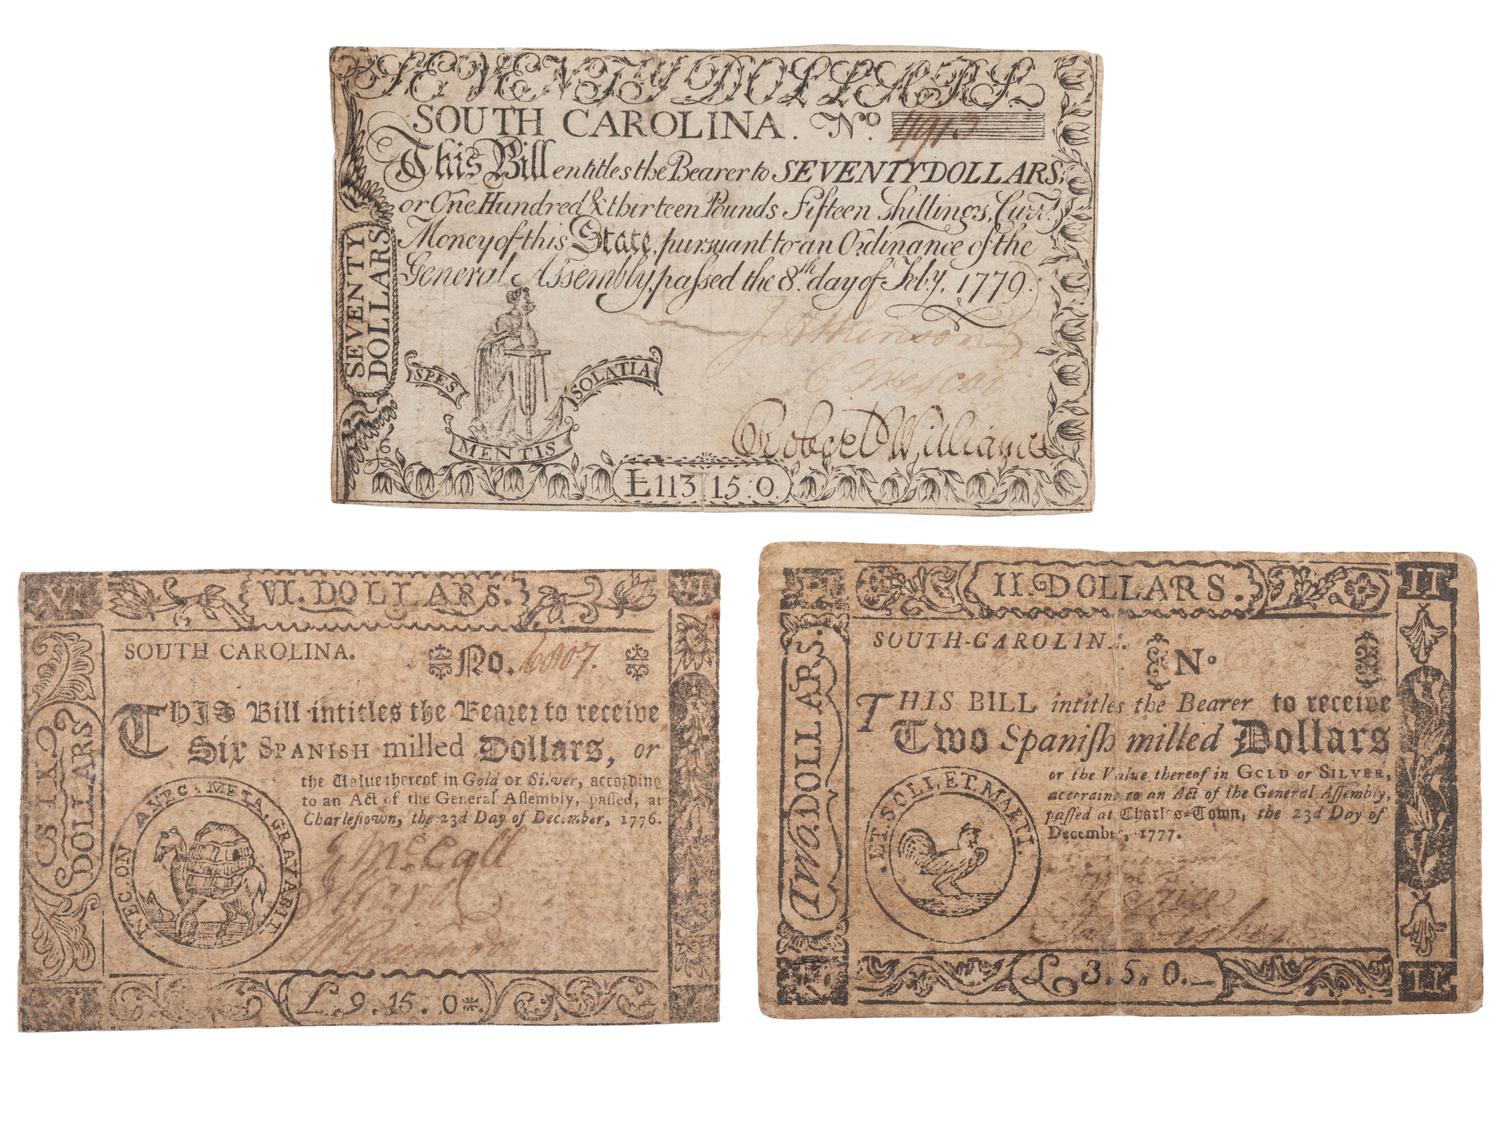 SEVENTY DOLLARS
SOUTH CAROLINA. No. 4913
This Bill entitles the Bearer to SEVENTY DOLLARS;
or One Hundred & thirteen Pounds Fifteen Shillings, Curr.y
Money of this State, pursuant to an Ordinance of the
General Assembly, passed the 8.th day of Feb.y. 1779.
SEVENTY
DOLLARS
SPES
MENTIS
SOLATIA
J Atkinson
C Trescot
Robert Williams
£113 15.0.
VI VI. DOLLARS. VI
SOUTH CAROLINA. No. 6807.
THIS Bill intitles the Bearer to receive
Six SPANISH milled Dollars, or
the Value thereof in Gold or Silver, according
to an Act of the General Assembly, passed, at
Charlestown, the 23d Day of December, 1776.
SIX
DOLLARS
NEC. ON AVEC. META, GRAVARI.
J McCall
£. 9. 15. 0*.
VI
II. DOLLARS. II
SOUTH-CAROLIN. No
THIS BILL intitles the Bearer to receive
Two Spanish milled Dollars
or the Value thereof in GOLD or SILVER,
accoraing to an Act of the General Assembly,
passed at Charles-Town, the 23d Day of
December, 1777.
Two. DOLLARS.
ET SOLI, ET MARTI.
£. 3. 5. 0.
II